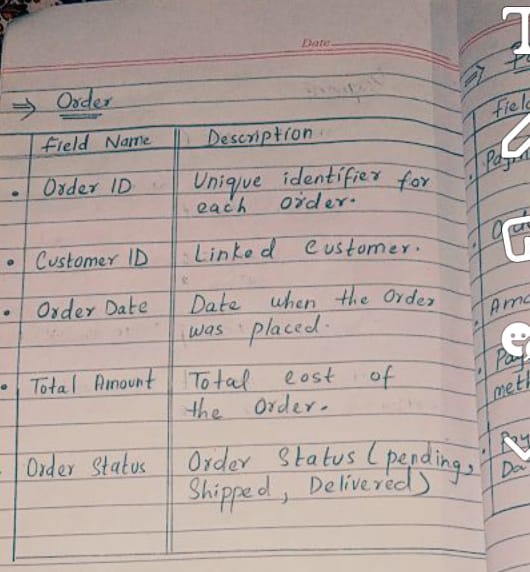 Date
⇒ Order
Field Name Description
• Order ID Unique identifier for
each order.
• Customer ID Linked Customer.
• Order Date Date when the Order
was placed.
• Total Amount Total cost of
the Order.
Order Status Order Status (pending,
Shipped, Delivered)